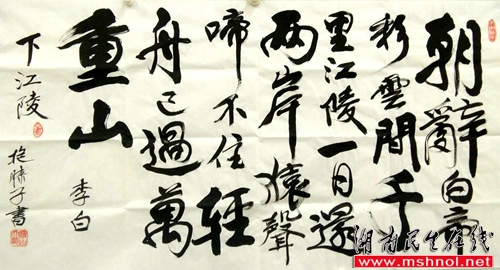 朝辭白帝
彩雲間千
里江陵一日還
兩岸猿聲
啼不住輕
舟已過萬
重山
李白
下江陵
湖南民生在线
www.mshnol.net